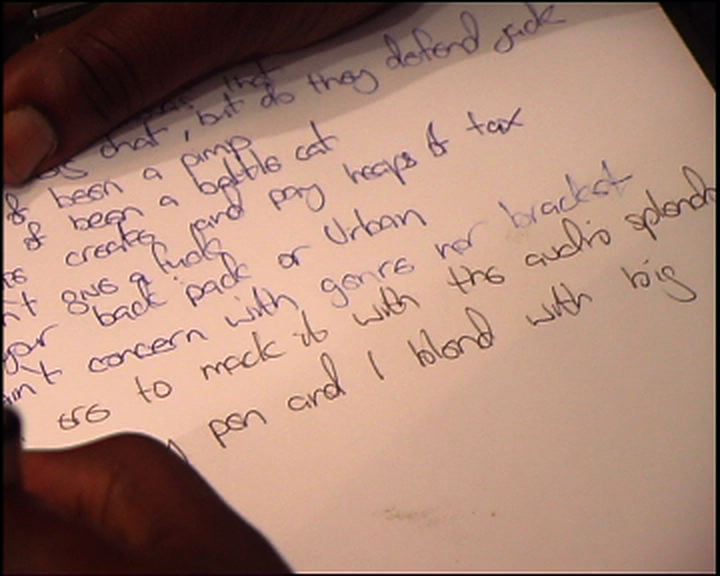 that
chat, but do they defend jack
of been a pimp
of been a battle cat
create and pay heaps of tax
n't give a fuck
your back pack or Urban
ain't concern with genre nor bracket
ere to mack it with the audio splend
pen and I blend with big